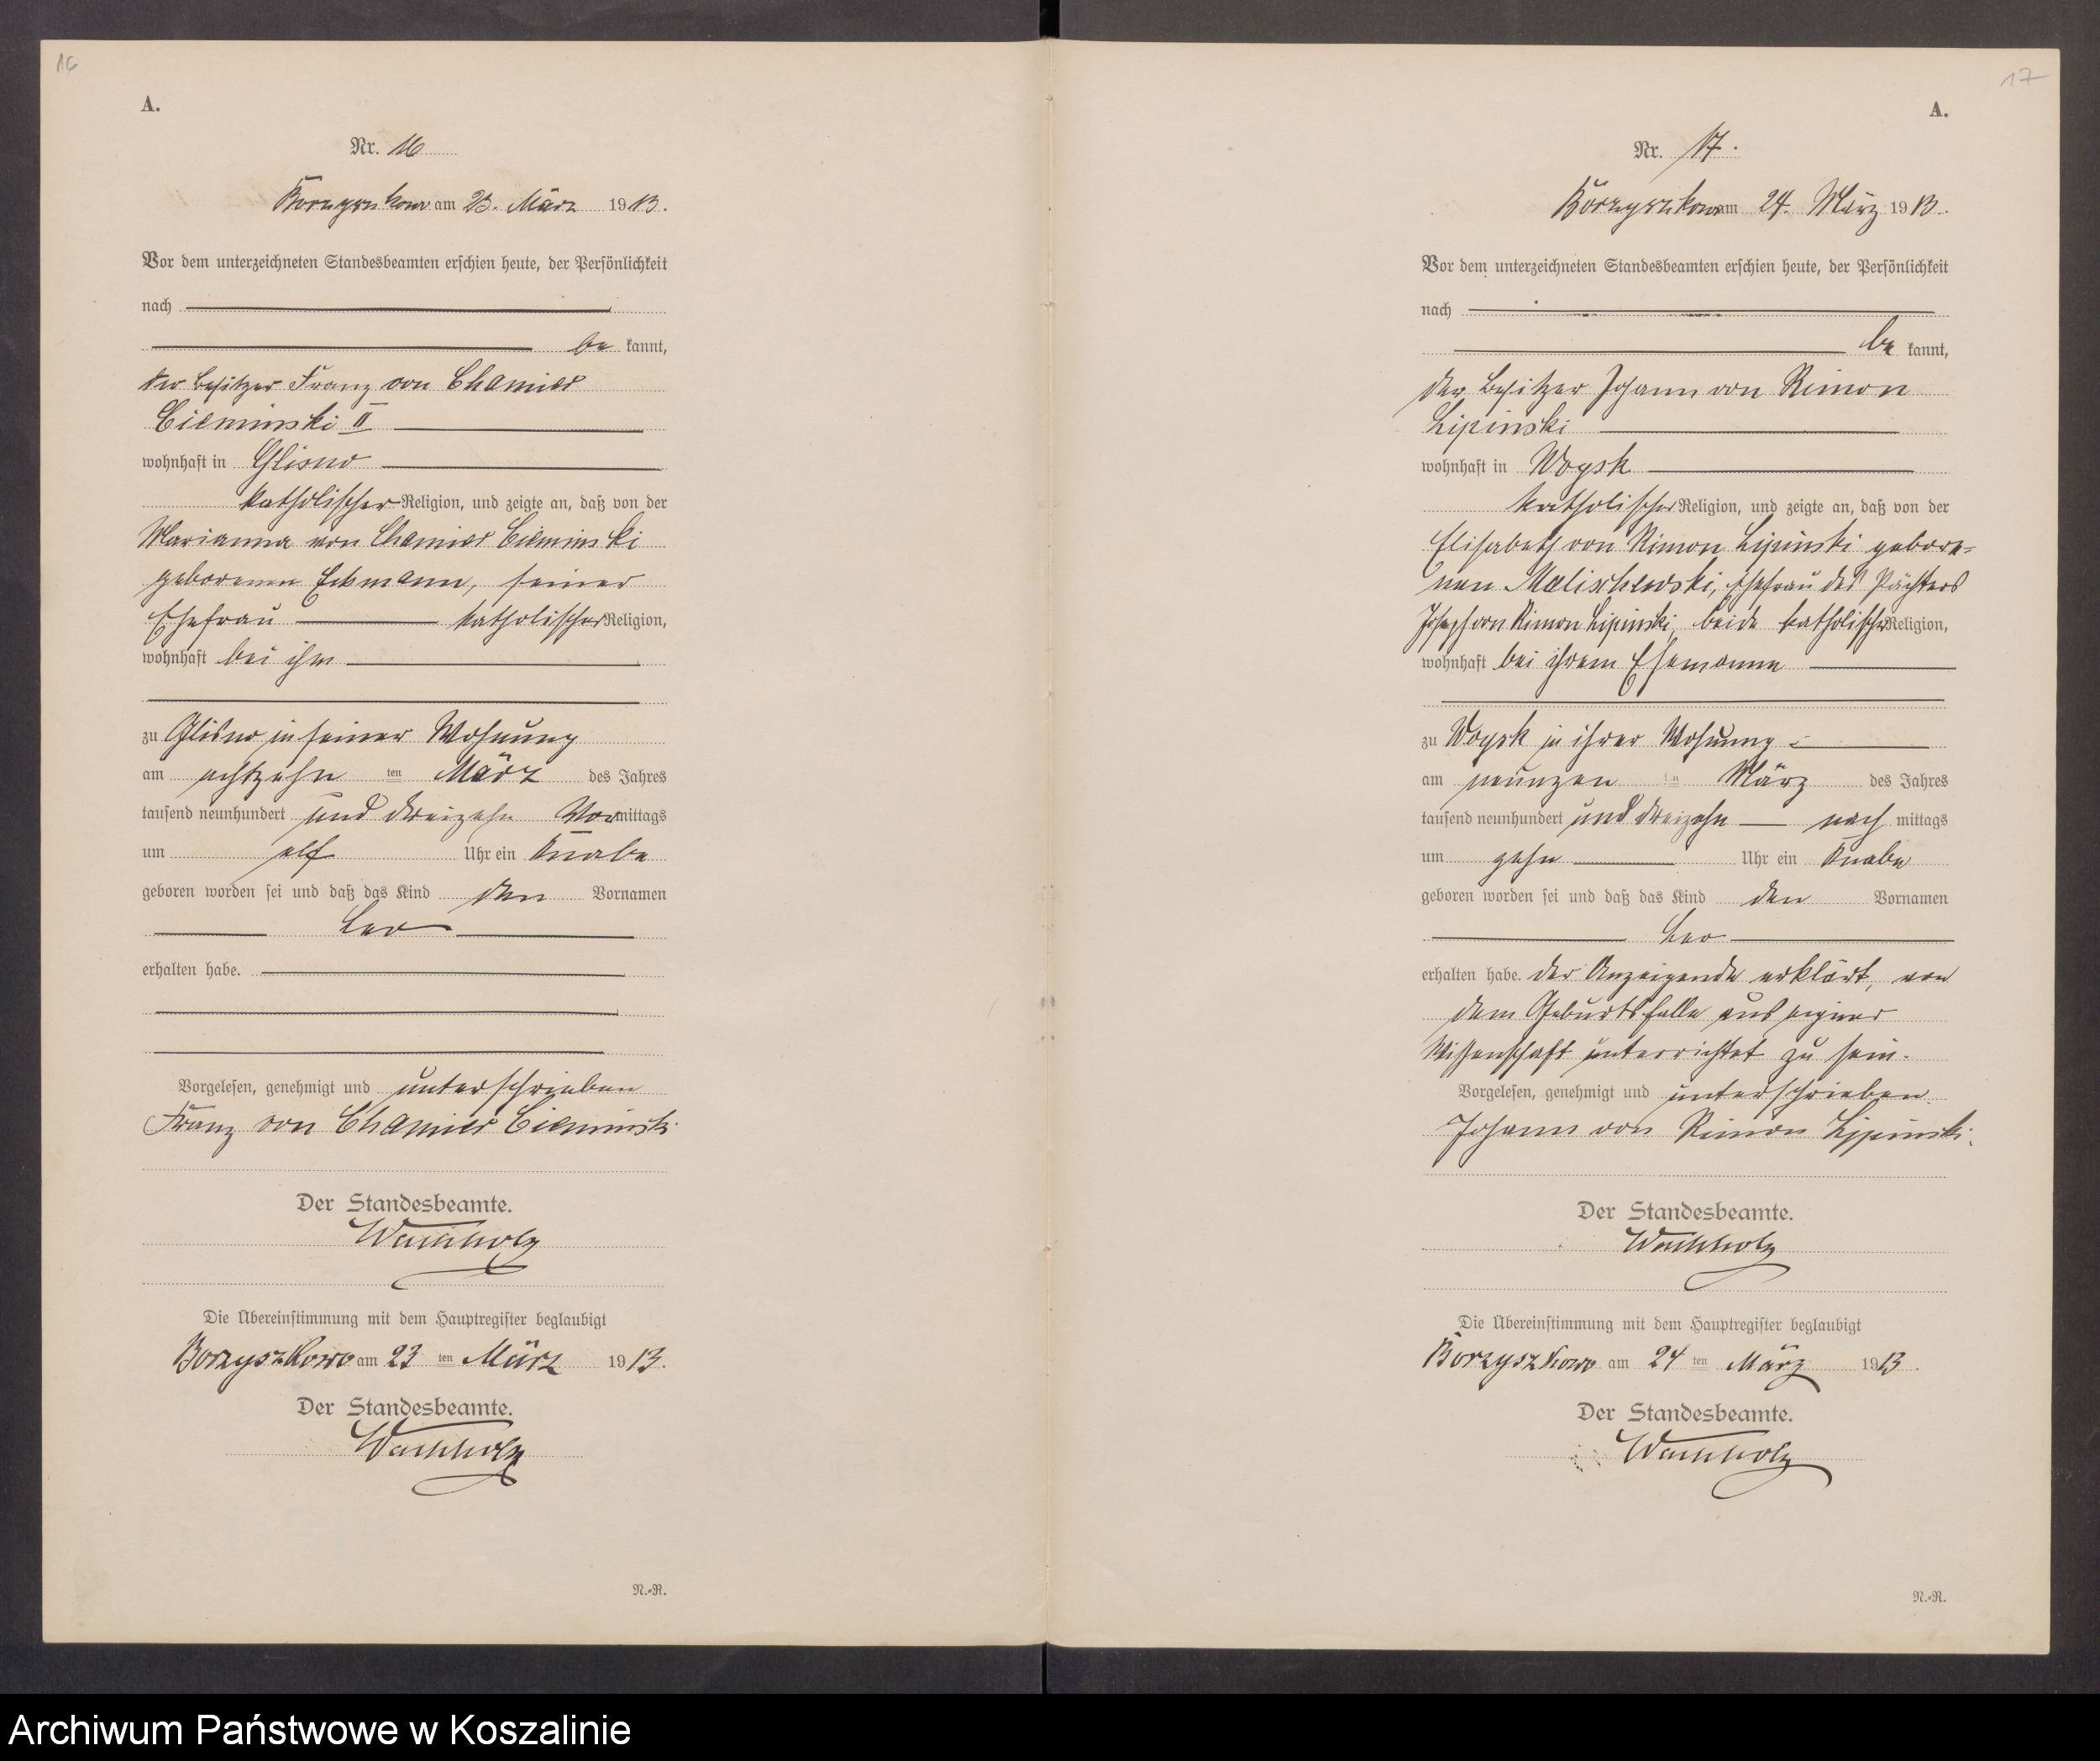 16
A.
Nr. 16
Borzyszkowo am 23. März 1913.
Vor dem unterzeichneten Standesbeamten erschien heute, der Persönlichkeit
nach
be kannt,
der Besitzer Franz von Chamier
Cieminski II
wohnhaft in Glisno
katholischer Religion, und zeigte an, daß von der
Marianna von Chamier Cieminski
geborenen Eckmann, seiner
Ehefrau katholischer Religion,
wohnhaft bei ihm
zu Glisno in seiner Wohnung
am achtzehn ten März des Jahres
tausend neunhundert und dreizehn Vormittags
um elf Uhr ein Knabe
geboren worden sei und daß das Kind den Vornamen
Leo
erhalten habe.
Vorgelesen, genehmigt und unterschrieben
Franz von Chamier Cieminski
Der Standesbeamte.
Wachholz
Die Übereinstimmung mit dem Hauptregister beglaubigt
Borzyszkowo am 23 ten März 1913.
Der Standesbeamte.
Wachholz
N.-R.
17
A.
Nr. 17.
Borzyszkowo am 24. März 1913.
Vor dem unterzeichneten Standesbeamten erschien heute, der Persönlichkeit
nach
be kannt,
der Besitzer Johann von Rimon
Lipinski
wohnhaft in Wogsk
katholischer Religion, und zeigte an, daß von der
Elisabeth von Rimon Lipinski gebore-
nen Malischewski, Ehefrau des Pächters
Joseph von Rimon Lipinski, beide katholischer Religion,
wohnhaft bei ihrem Ehemanne
zu Wogsk in ihrer Wohnung
am neunzen ten März des Jahres
tausend neunhundert und dreizehn nach mittags
um zehn Uhr ein Knabe
geboren worden sei und daß das Kind den Vornamen
Leo
erhalten habe. Der Anzeigende erklärt, von
dem Geburtsfalle aus eigner
Wissenschaft unterrichtet zu sein.
Vorgelesen, genehmigt und unterschrieben.
Johann von Rimon Lipinski.
Der Standesbeamte.
Wachholz
Die Übereinstimmung mit dem Hauptregister beglaubigt
Borzyszkowo am 24 ten März 1913.
Der Standesbeamte.
Wachholz
N.-R.
Archiwum Państwowe w Koszalinie